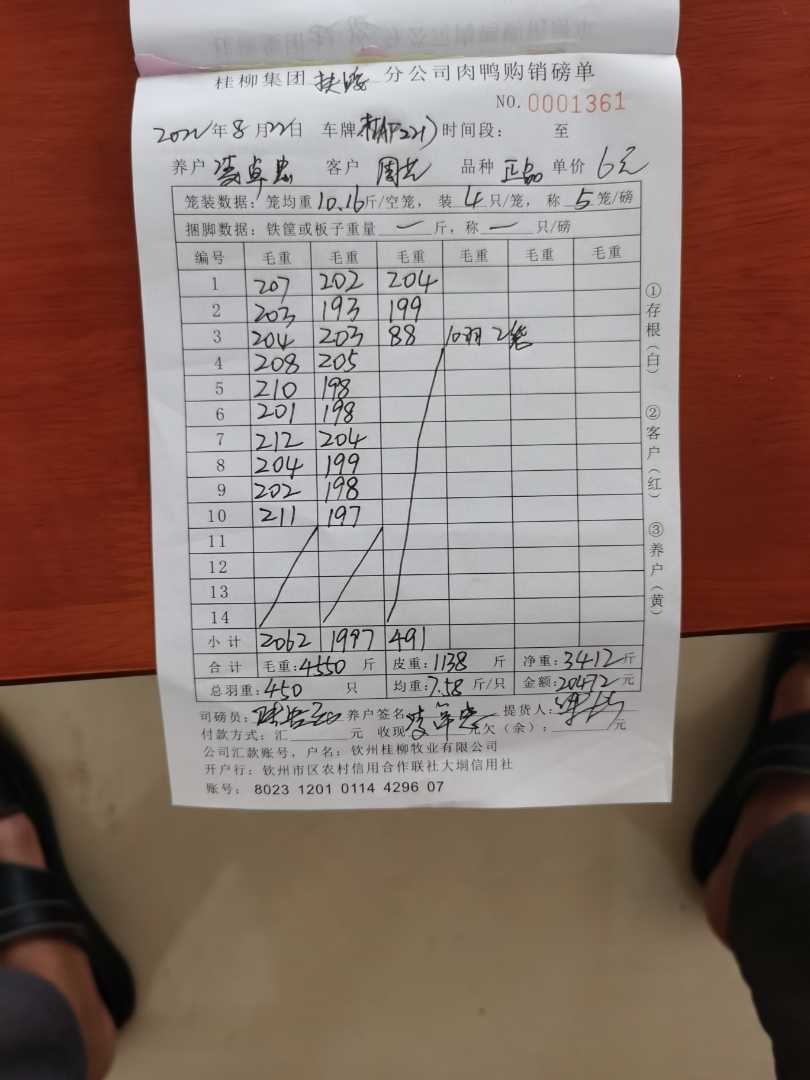 桂柳集团扶绥分公司肉鸭购销磅单
NO. 0001361
2022年8月22日 车牌: 时间段: 至
养户 凌卓忠 客户 周艺 品种 正品 单价 6元
笼装数据: 笼均重10.16斤/空笼, 装4只/笼, 称5笼/磅
捆脚数据: 铁筐或板子重量一斤, 称一只/磅
编号 毛重 毛重 毛重 毛重 毛重 毛重
1 207 202 204
2 203 193 199
3 204 203 88 10羽2笼
4 208 205
5 210 198
6 201 198
7 212 204
8 204 199
9 202 198
10 211 197
11
12
13
14
小计 2062 1997 491
合计 毛重:4550斤 皮重:1138斤 净重:3412斤
总羽重:450只 均重:7.58斤/只 金额:20472元
司磅员: 养户签名 提货人:
付款方式: 汇 元 收现 元欠(余): 元
公司汇款账号, 户名: 钦州桂柳牧业有限公司
开户行: 钦州市区农村信用合作联社大垌信用社
账号: 8023 1201 0114 4296 07
①存根(白) ②客户(红) ③养户(黄)